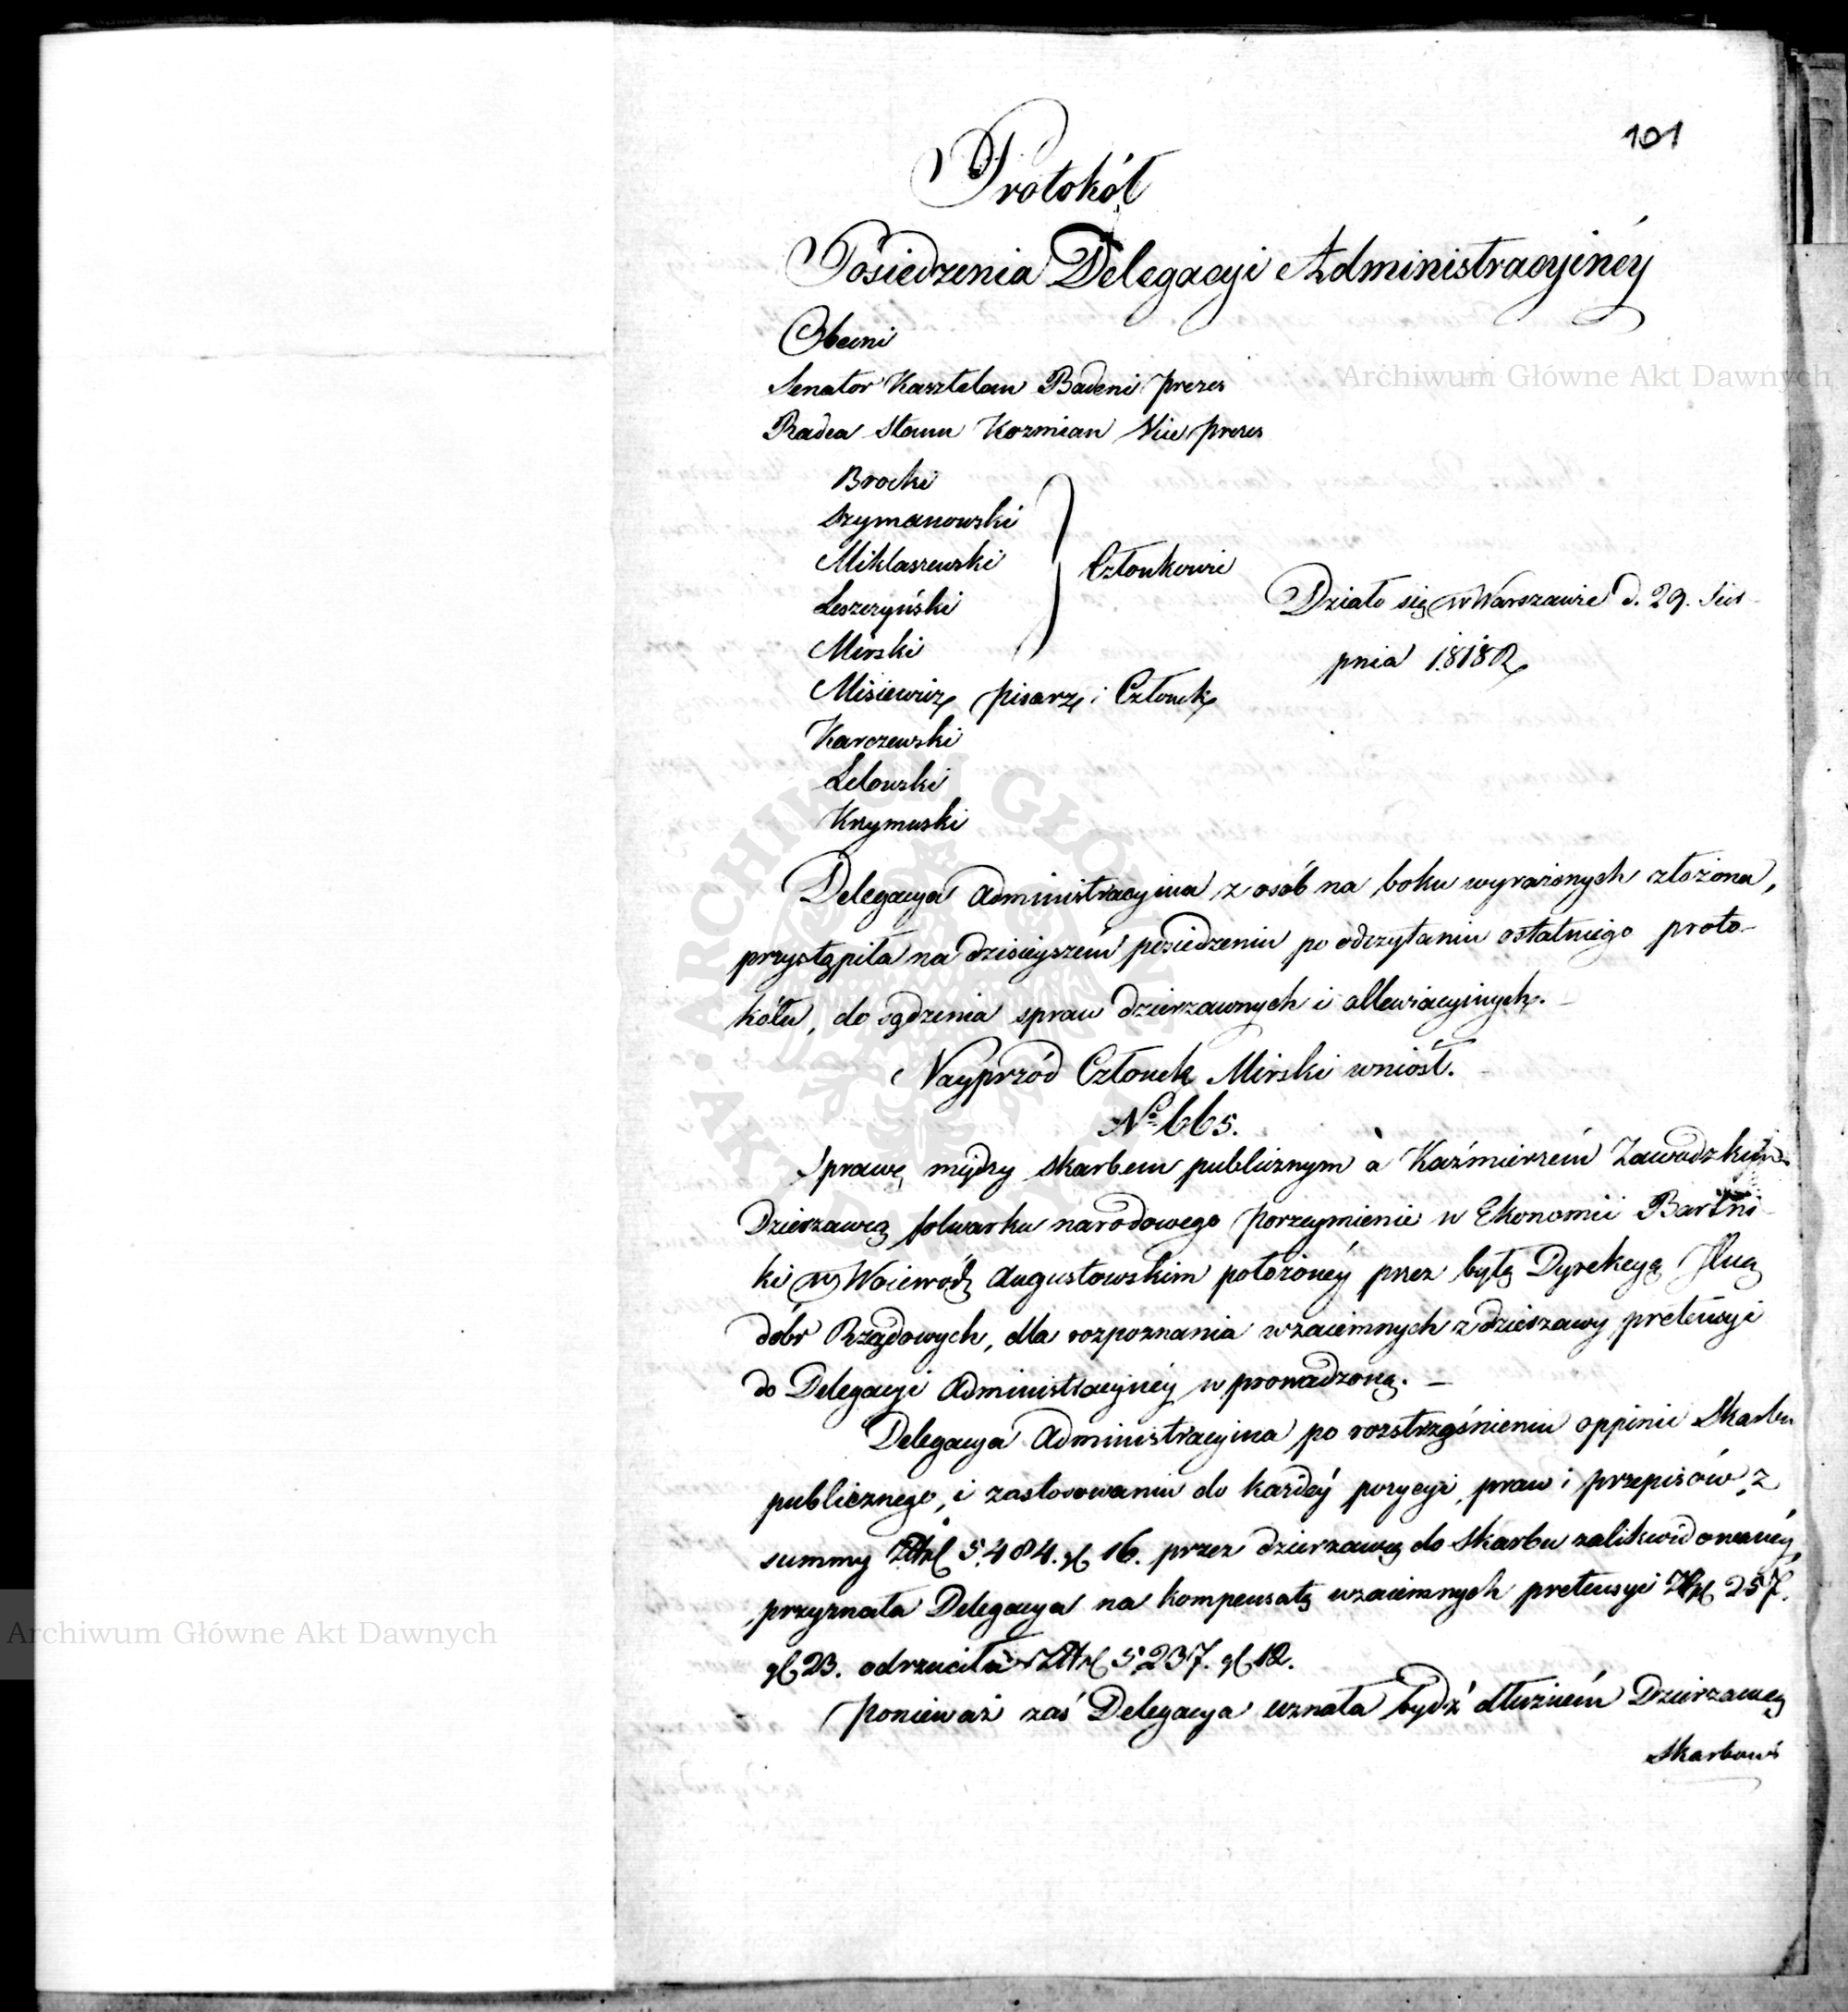 101
Protokół
Posiedzenia Delegacyi Administracyinéy
Obecni
Senator Kasztelan Badeni Prezes
Radca Stanu Kozmian Vice prezes
Brocki
Szymanowski
Miklaszewski
Leszczyński
Mirski
Członkowie
Działo się w Warszawie d. 29. Sier-
pnia 1818 R
Misiewicz pisarz i Członek
Karczewski
Lelowski
Krymuski
Delegacya Administracyina z osób na boku wyrażonych złożona,
przystąpiła na dzisieyszém posiedzeniu po odczytaniu ostatniego proto-
kółu, do sądzenia spraw dzierzawnych i allewiacyinych.
Nayprzód Członek Mirski wniósł.
No 665.
Sprawę między skarbem publicznym a Kaźmierzém Zawadzkim
Dzierzawcą folwarku narodowego Porzeymienie w Ekonomii Bartni-
ki w Woiewódz Augustowskim położonéy przez byłą Dyrekcyą
dóbr Rządowych, dla rozpoznania wzaiemnych z dzierzawy pretensyi
do Delegacyi Administracyinéy wprowadzoną. –
Delegacya Administracyina po rozstrząśnieniu oppinii Skarbu
publicznego, i zastosowaniu do każdéy pozycyi, praw i przepisów, z
summy Złpl 5,484. gl 16. przez dzierzawcę do Skarbu zalikwidowanéy,
przyznała Delegacya na kompensatę wzaiemnych pretensyi Złpl 257.
gl 23. odrzuciła Złpl 5,237. gl 12.
Ponieważ zaś Delegacya uznała bydź dłużném Dzierzawcę
Skarbowi
Archiwum Główne Akt Dawnych
Archiwum Główne Akt Dawnych
ARCHIWUM GŁÓWNE AKT DAWNYCH